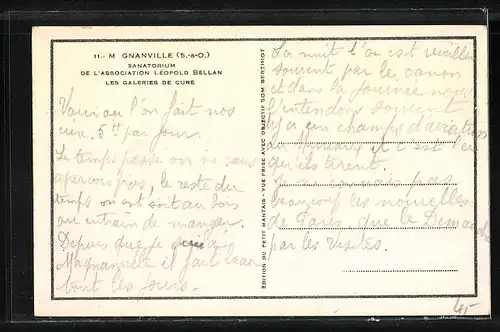 11.- M GNANVILLE (S.-&-O.)
SANATORIUM
DE L'ASSOCIATION LÉOPOLD BELLAN
LES GALERIES DE CURE
Voici ou l'on fait nos
cure. 5 h par jour.
Le temps passe on ne sans
aperçois pas, le reste du
temps on est soit au bois
ou en train de manger.
Depuis que je suis à
Magnanville il fait beau
tout les jours.
ÉDITION DU PETIT MANTAIS - VUE PRISE AVEC OBJECTIF SOM BERTHIOT
La nuit l'on est réveiller
souvent par le canon
et dans la journée nous
l'entendons souvent
il y a un champs d'aviation
au et c'est l'
qu'ils tirent.
Je ne sais pas
beaucoup les nouvelles
de Paris que le Dimanche
par les Visites.
45-